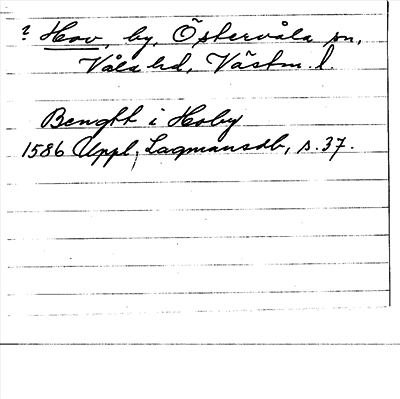 ? Hov, by, Östervåla sn,
Våla hd, Västm. l.
Benght i Hoby
1586 Uppl. Lagmansdb, s. 37.